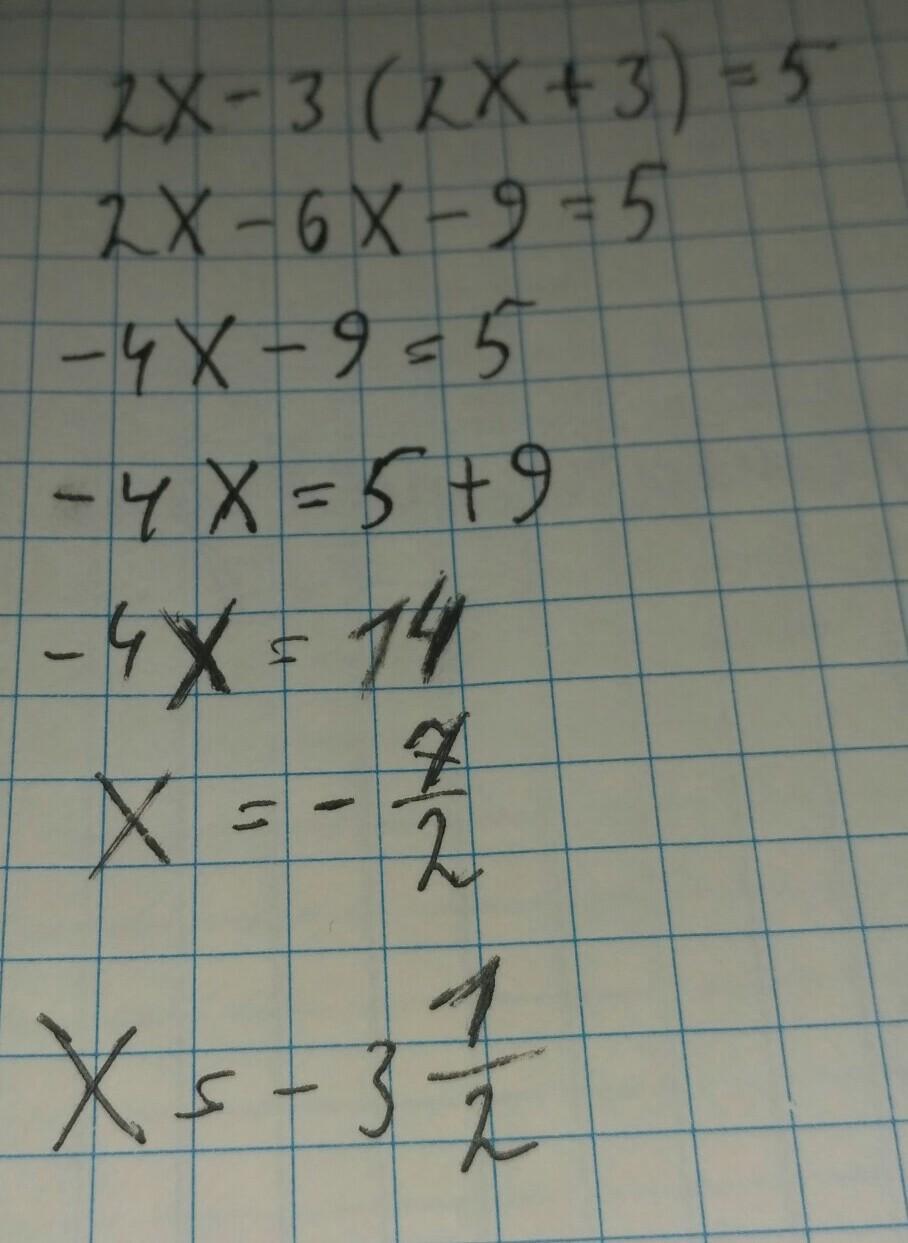 2x - 3(2x + 3) = 5
2x - 6x - 9 = 5
-4x - 9 = 5
-4x = 5 + 9
-4x = 14
x = - 7/2
x = - 3 1/2